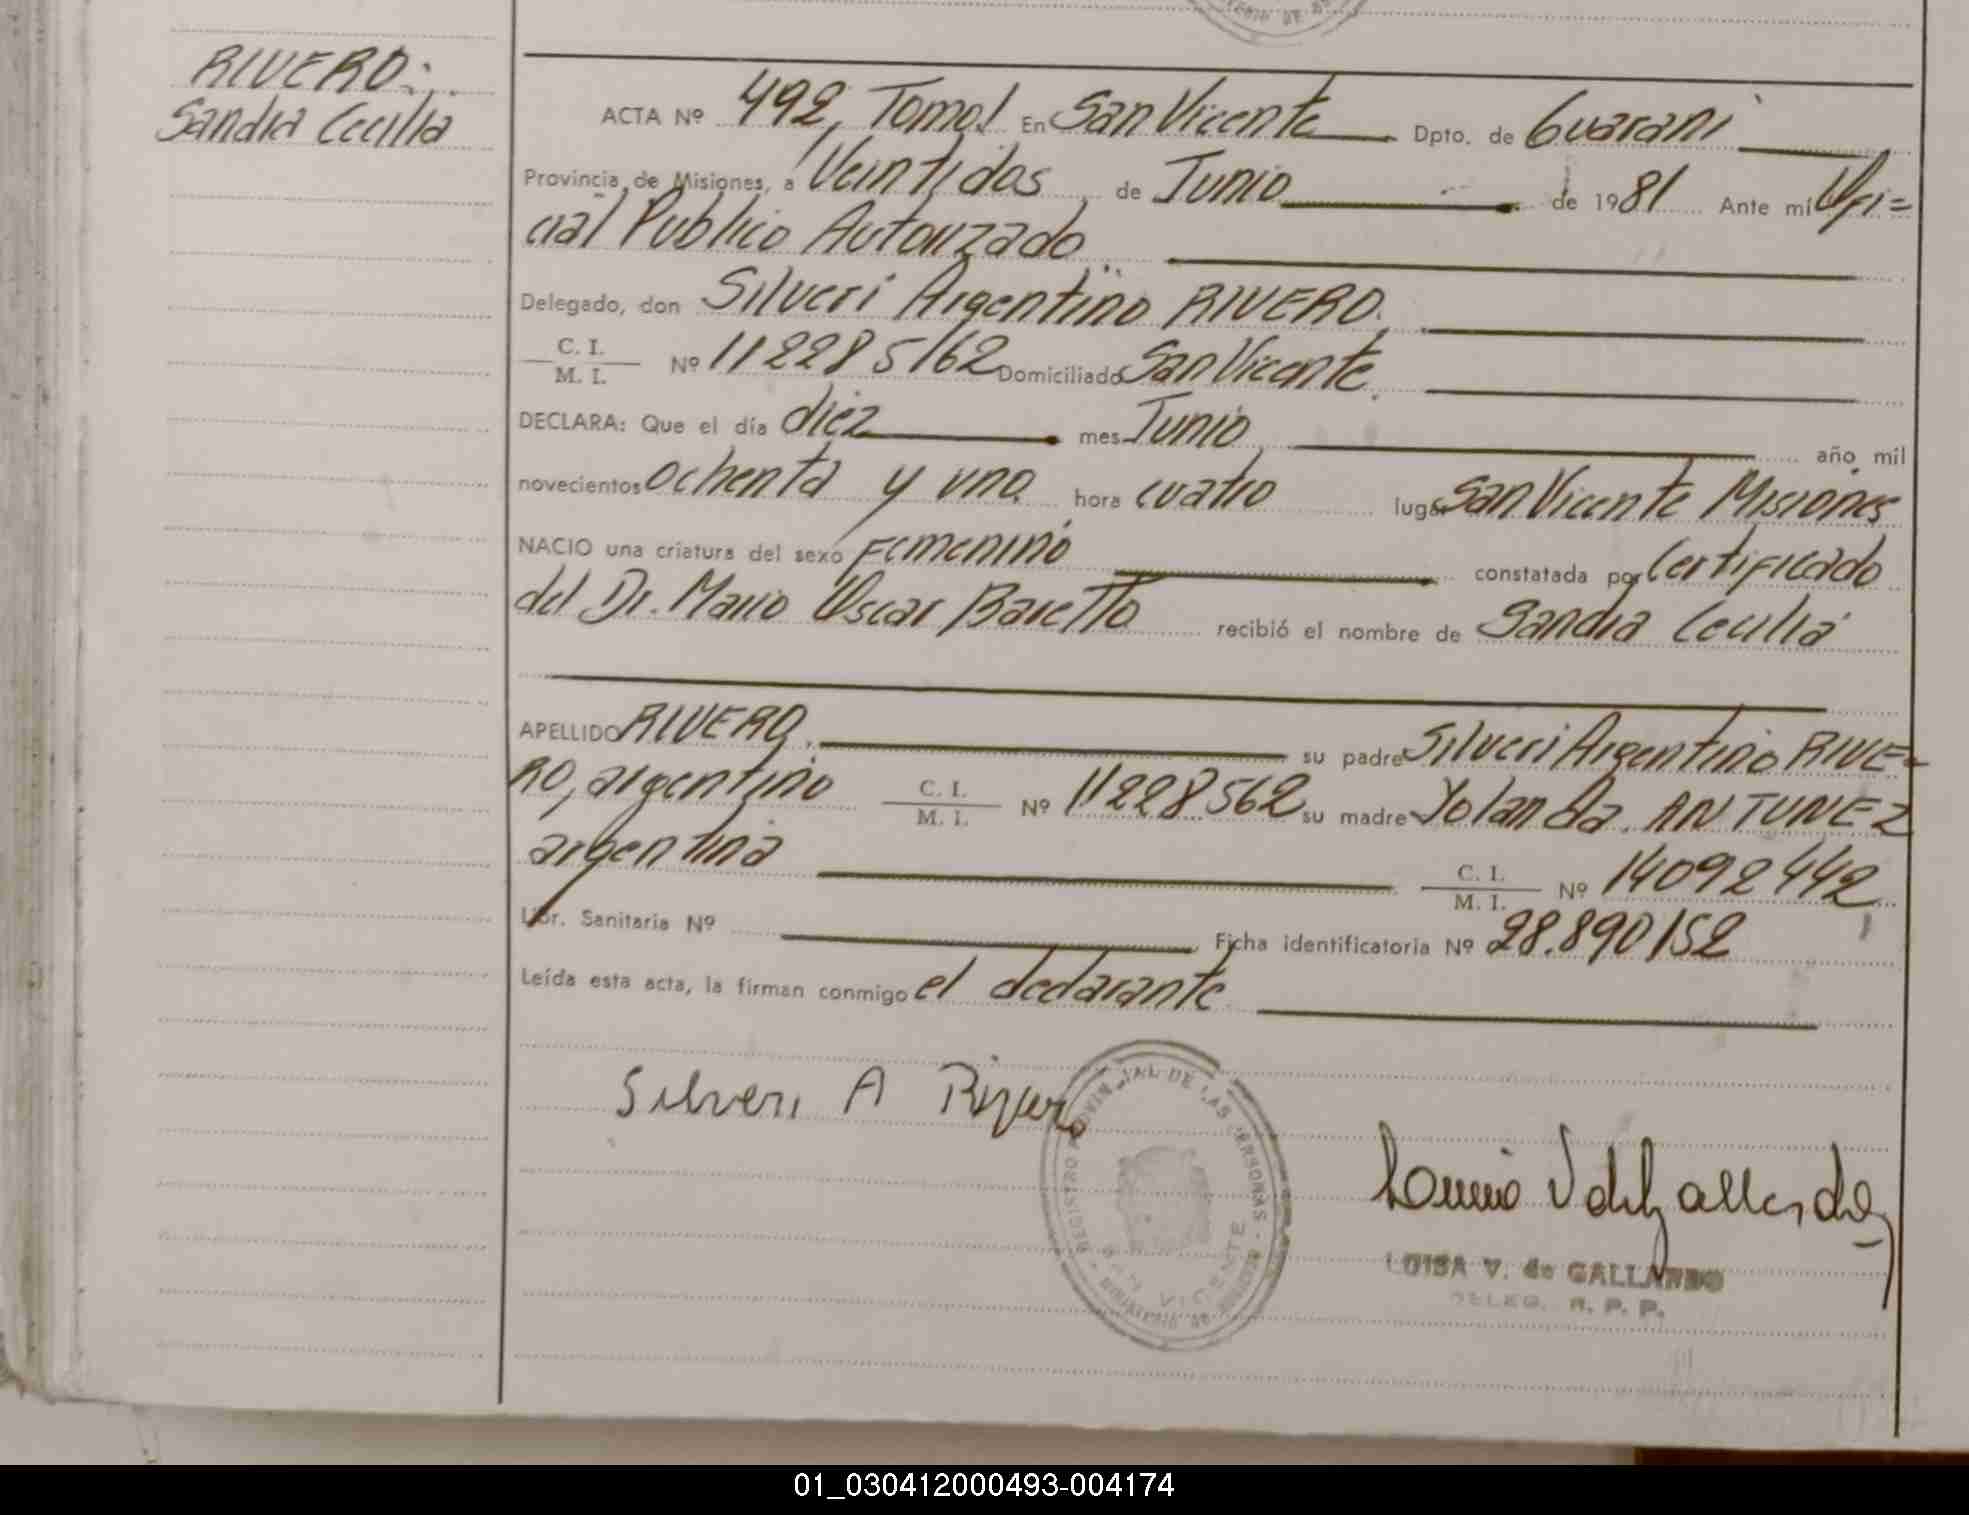 RIVERO:
Sandra Cecilia
ACTA Nº 492, Tomo I En San Vicente Dpto. de Guaraní
Provincia de Misiones, a Veintidos de Junio de 1981 Ante mí Ofi=
cial Publico Autorizado
Delegado, don Silveri Argentino RIVERO.
C. I.
M. I. Nº 11228562 Domiciliado San Vicente.
DECLARA: Que el día diez mes Junio año mil
novecientos ochenta y uno hora cuatro lugar San Vicente Misiones
NACIO una criatura del sexo Femenino constatada por Certificado
del Dr. Mario Oscar Baretto recibió el nombre de Sandra Cecilia
APELLIDO RIVERO, su padre Silveri Argentino RIVE-
RO, argentino C. I. M. I. Nº 11228562 su madre Yolanda ANTUNEZ
argentina C. I. M. I. Nº 14092442
Libr. Sanitaria Nº Ficha identificatoria Nº 28.890152
Leída esta acta, la firman conmigo el declarante
Silveri A Rivero
REGISTRO PROVINCIAL DE LAS PERSONAS
SAN VICENTE
LUISA V. de GALLARDO
DELEG. R. P. P.
01_030412000493-004174